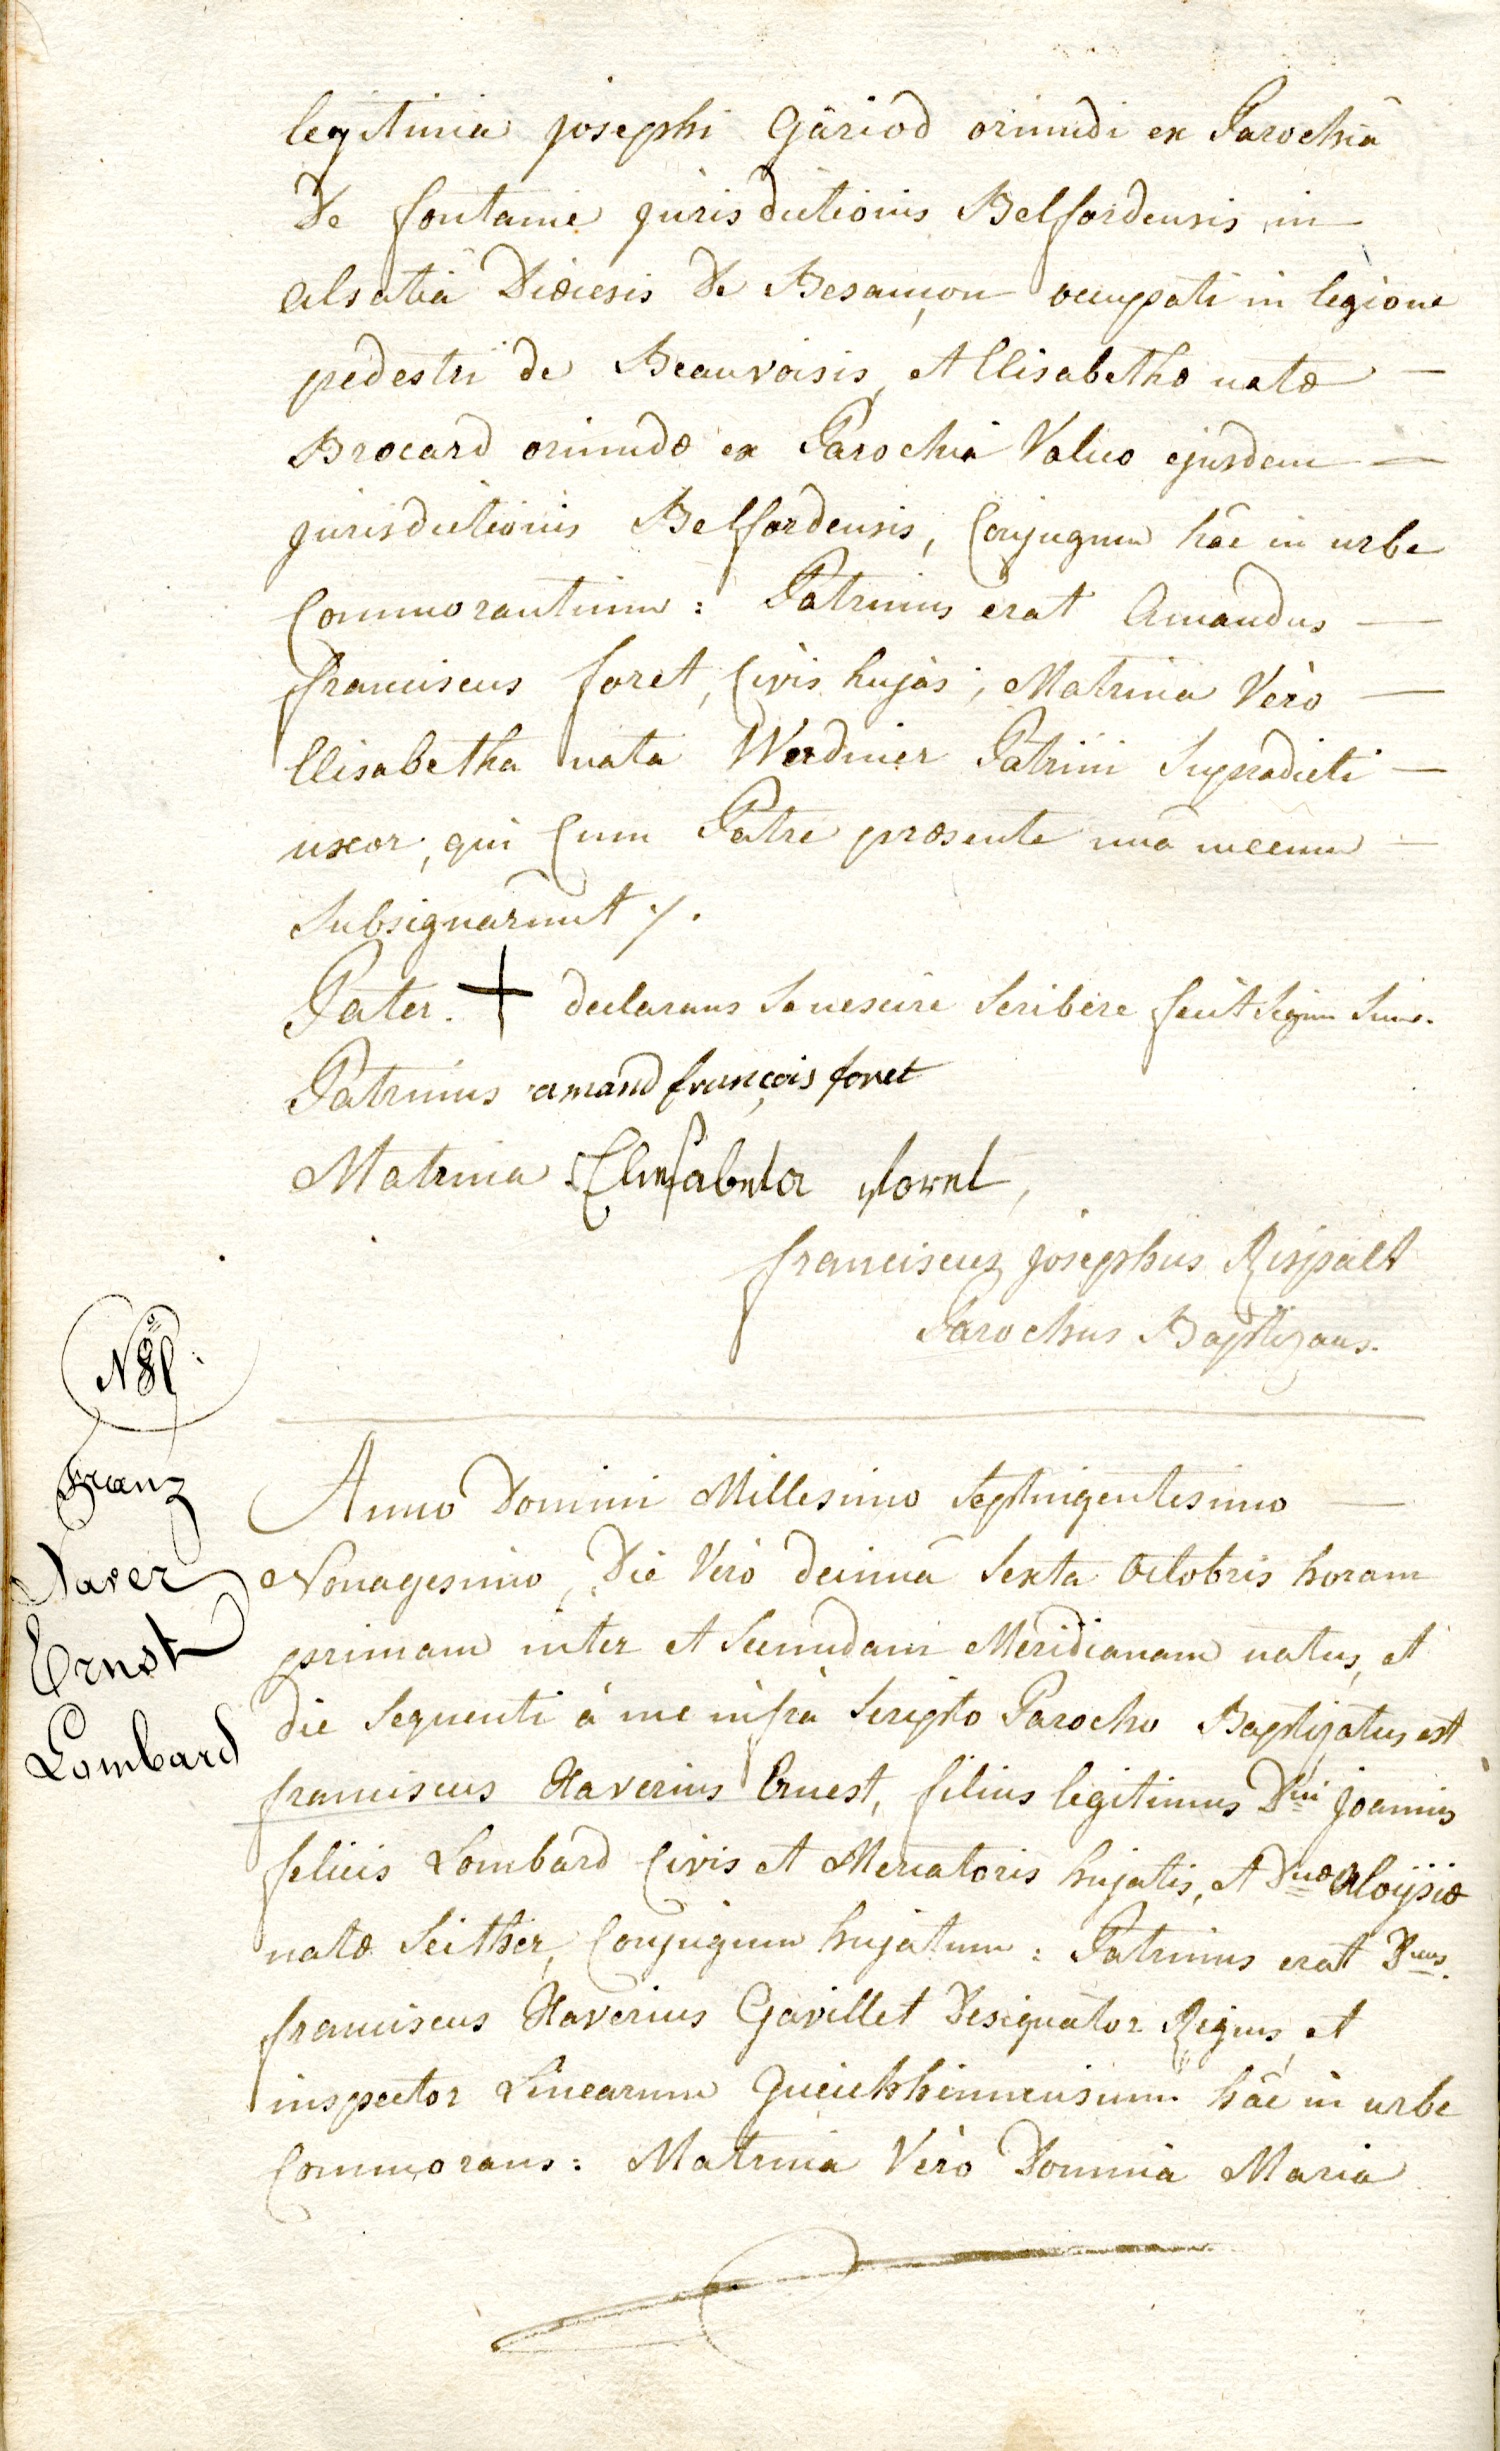 legitima josephi Gäriod oriundi ex Parochiâ
de fontaine jurisdictionis Belfordensis in
alsatiâ Diœcesis de Besançon occupati in legione
pedestri de Beauvoisis, et Elisabethæ natæ —
Brocard oriundæ ex Parochiâ Valico ejusdem —
jurisdictionis Belfordensis, Conjugum hâc in urbe
Commorantium : Patrinus erat Amandus —
franciscus foret, Civis hujas ; Matrina Verò —
Elisabetha nata Werdmer Patrini Supradicti —
uxor, qui Cum Patre præsente unâ mecum —
Subsignarunt ./.
Pater. + declarans Se nescire Scribere fecit Signum Suum.
Patrinus amand françois foret
Matrina Elisabeta foret,
franciscus josephus Rispalt
Parochus Baptizans.
N 81:
Franz
Xaver
Ernst
Lombard
Anno Domini Millesimo Septingentesimo —
Nonagesimo, Die Verò decimâ Sexta Octobris horam
primam inter et Secundam Meridianam natus, et
die Sequenti à me infrà Scripto Parocho Baptizatus est
franciscus Xaverius Ernest, filius legitimus Dni Joannis
felicis Lombard Civis et Mercatoris hujatis, et Dnæ Aloÿsiæ
natæ Seither, Conjugum hujatum : Patrinus erat Dnus.
franciscus Xaverius Gavillet Designator Regius, et
inspector Linearum Queichheimensium hâc in urbe
Commorans : Matrina Verò Domina Maria